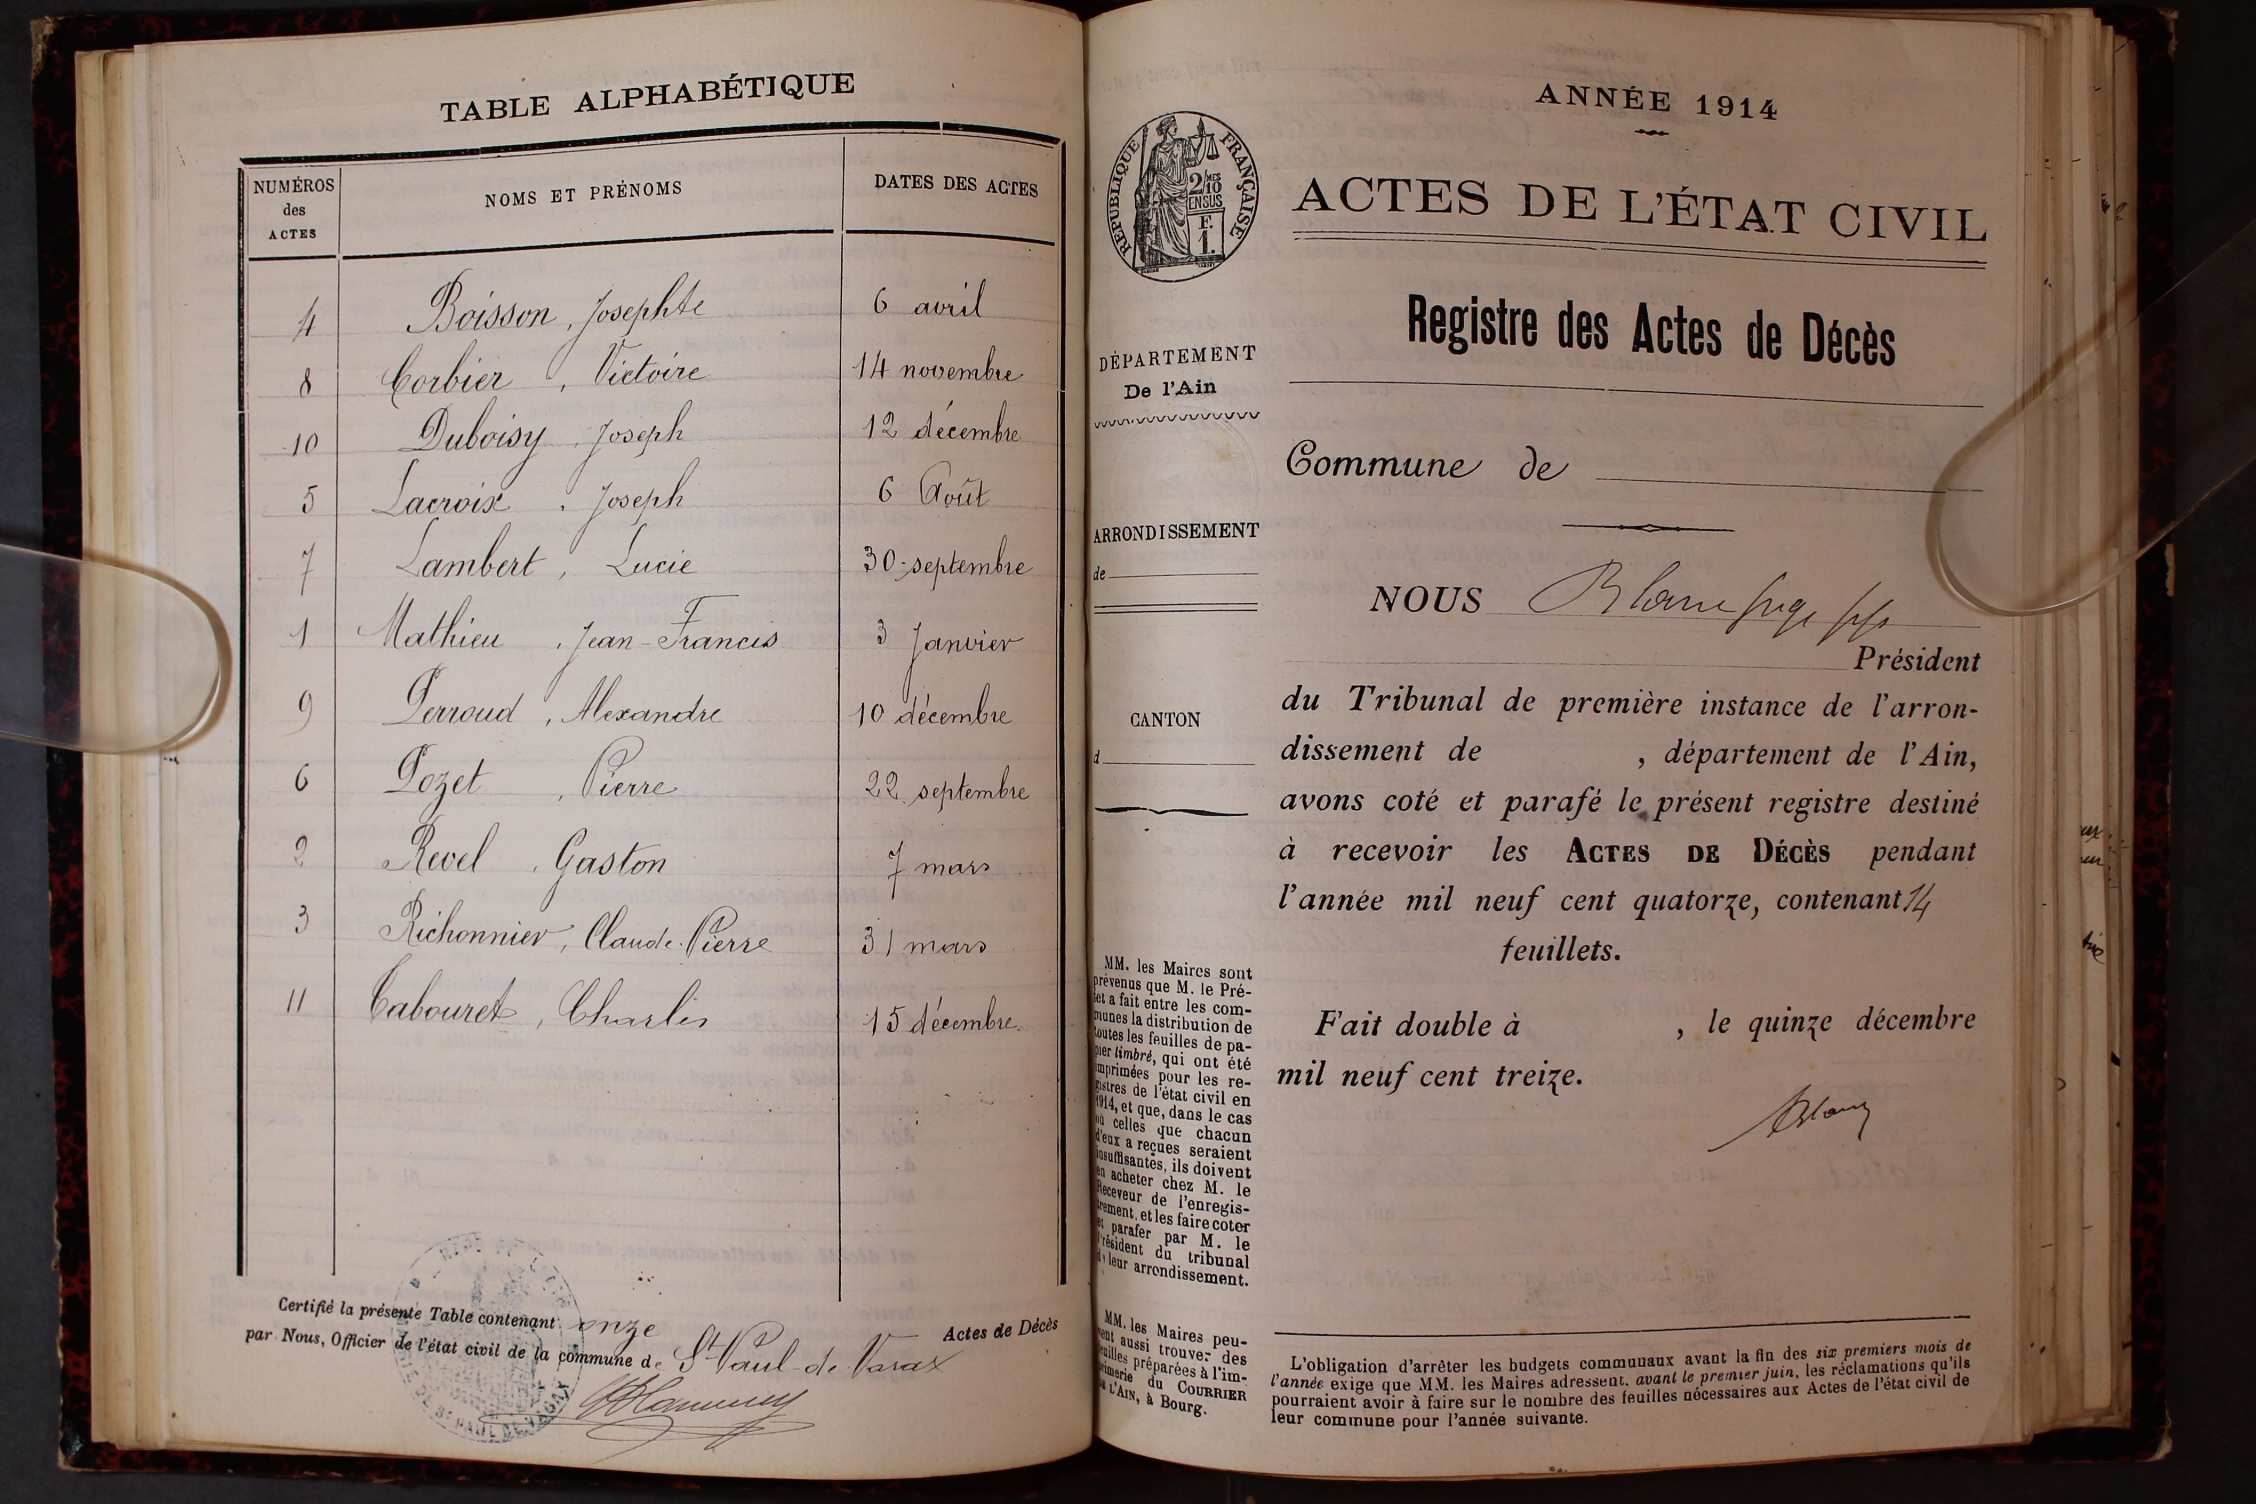 TABLE ALPHABÉTIQUE
NUMÉROS des ACTES
NOMS ET PRÉNOMS
DATES DES ACTES
4 Boisson, Josephte 6 avril
8 Corbier, Victoire 14 novembre
10 Duboisy, Joseph 12 décembre
5 Lacroix, Joseph 6 Août
7 Lambert, Lucie 30 septembre
1 Mathieu, Jean-Francis 3 Janvier
9 Perroud, Alexandre 10 décembre
6 Pozet, Pierre 22 septembre
2 Revel, Gaston 7 mars
3 Richonnier, Claude-Pierre 31 mars
11 Tabouret, Charles 15 décembre
Certifié la présente Table contenant onze Actes de Décès
par Nous, Officier de l'état civil de la commune de St Paul-de-Varax
ANNÉE 1914
RÉPUBLIQUE FRANÇAISE
2/10 MES
EN SUS
F.
1.
ACTES DE L'ÉTAT CIVIL
Registre des Actes de Décès
DÉPARTEMENT
De l'Ain
Commune de
ARRONDISSEMENT
de
NOUS
Président
du Tribunal de première instance de l'arron-
dissement de , département de l'Ain,
avons coté et parafé le présent registre destiné
à recevoir les ACTES DE DÉCÈS pendant
l'année mil neuf cent quatorze, contenant 14
feuillets.
Fait double à , le quinze décembre
mil neuf cent treize.
CANTON
d
MM. les Maires sont
prévenus que M. le Pré-
fet a fait entre les com-
munes la distribution de
toutes les feuilles de pa-
pier timbré, qui ont été
imprimées pour les re-
gistres de l'état civil en
1914, et que, dans le cas
où celles que chacun
d'eux a reçues seraient
insuffisantes, ils doivent
en acheter chez M. le
Receveur de l'enregis-
trement, et les faire coter
et parafer par M. le
Président du tribunal
de leur arrondissement.
MM. les Maires peu-
vent aussi trouver des
feuilles préparées à l'im-
primerie du COURRIER
DE L'AIN, à Bourg.
L'obligation d'arrêter les budgets communaux avant la fin des six premiers mois de
l'année exige que MM. les Maires adressent, avant le premier juin, les réclamations qu'ils
pourraient avoir à faire sur le nombre des feuilles nécessaires aux Actes de l'état civil de
leur commune pour l'année suivante.